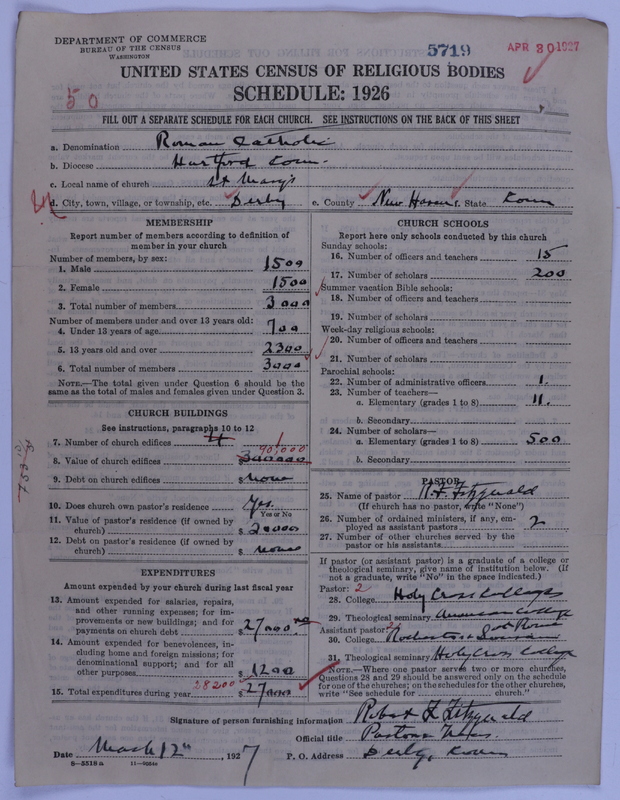 DEPARTMENT OF COMMERCE
BUREAU OF THE CENSUS
WASHINGTON
5719
APR 30 1927
UNITED STATES CENSUS OF RELIGIOUS BODIES
50
SCHEDULE: 1926
FILL OUT A SEPARATE SCHEDULE FOR EACH CHURCH. SEE INSTRUCTIONS ON THE BACK OF THIS SHEET
a. Denomination Roman Catholic
b. Diocese Hartford Conn.
c. Local name of church St Mary's
d. City, town, village, or township, etc. Derby e. County New Haven f. State Conn
MEMBERSHIP
Report number of members according to definition of
member in your church
Number of members, by sex:
1. Male 1500
2. Female 1500
3. Total number of members 3000
Number of members under and over 13 years old:
4. Under 13 years of age 700
5. 13 years old and over 2300
6. Total number of members 3000
NOTE.—The total given under Question 6 should be
same as the total of males and females given under Question 3.
CHURCH BUILDINGS
See instructions, paragraphs 10 to 12
7. Number of church edifices 4 1
90,000
8. Value of church edifices $ 300000
9. Debt on church edifices $ none
10. Does church own pastor's residence Yes.
Yes or No
11. Value of pastor's residence (if owned by
church) $ 20000
12. Debt on pastor's residence (if owned by
church) $ none
EXPENDITURES
Amount expended by your church during last fiscal year
13. Amount expended for salaries, repairs,
and other running expenses; for im-
provements or new buildings; and for
payments on church debt $ 27000
14. Amount expended for benevolences, in-
cluding home and foreign missions; for
denominational support; and for all
other purposes $ 1200
28200
15. Total expenditures during year $ 27000
CHURCH SCHOOLS
Report here only schools conducted by this church
Sunday schools:
16. Number of officers and teachers 15
17. Number of scholars 200
Summer vacation Bible schools:
18. Number of officers and teachers
19. Number of scholars
Week-day religious schools:
20. Number of officers and teachers
21. Number of scholars
Parochial schools:
22. Number of administrative officers 1.
23. Number of teachers—
a. Elementary (grades 1 to 8) 11.
b. Secondary
24. Number of scholars—
a. Elementary (grades 1 to 8) 500
b. Secondary
PASTOR
25. Name of pastor R. F. Fitzgerald
(If church has no pastor, write "None")
26. Number of ordained ministers, if any, em-
ployed as assistant pastors 2
27. Number of other churches served by the
pastor or his assistants
If pastor (or assistant pastor) is a graduate of a college or
theological seminary, give name of institution below. (If
not a graduate, write "No" in the space indicated.)
Pastor: 2
28. College Holy Cross College
29. Theological seminary American College
Assistant pastor: Rome
30. College Rochester +
31. Theological seminary Holy Cross College
NOTE.—Where one pastor serves two or more churches,
Questions 28 and 29 should be answered only on the schedule
for one of the churches; on the schedules for the other churches,
write "See schedule for church."
Signature of person furnishing information Robert F. Fitzgerald
Official title
Date March 12th, 1927 P. O. Address Derby, Conn
8-5518a 11-9554